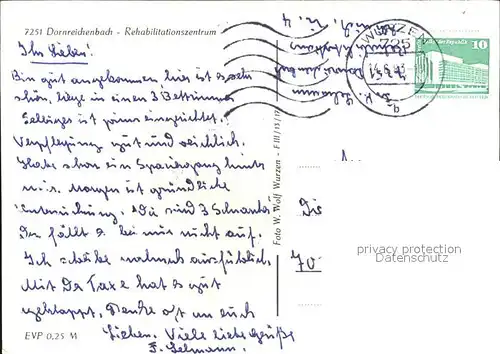 7251 Dornreichenbach - Rehabilitationszentrum
Ihr Lieben!
Bin gut angekommen hier ist es sehr
schön, liege in einen 3 Bettzimmer
ist prima eingerichtet.
Verpflegung gut und reichlich.
Habe schon ein Spaziergang hinter
mir. Morgen ist gründliche
Untersuchung. Da sind 3 Schwanke
Da fällt es bei mir nicht auf.
Ich schreibe nochmals ausführlich.
Mit der Taxe hat es gut
geklappt. Denke oft an euch
Lieben. Viele liebe Grüße
EVP 0,25 M
Foto W. Wolf Wurzen - F III/13/17
WURZEN
725
10
Di
70
privacy protection
Datenschutz